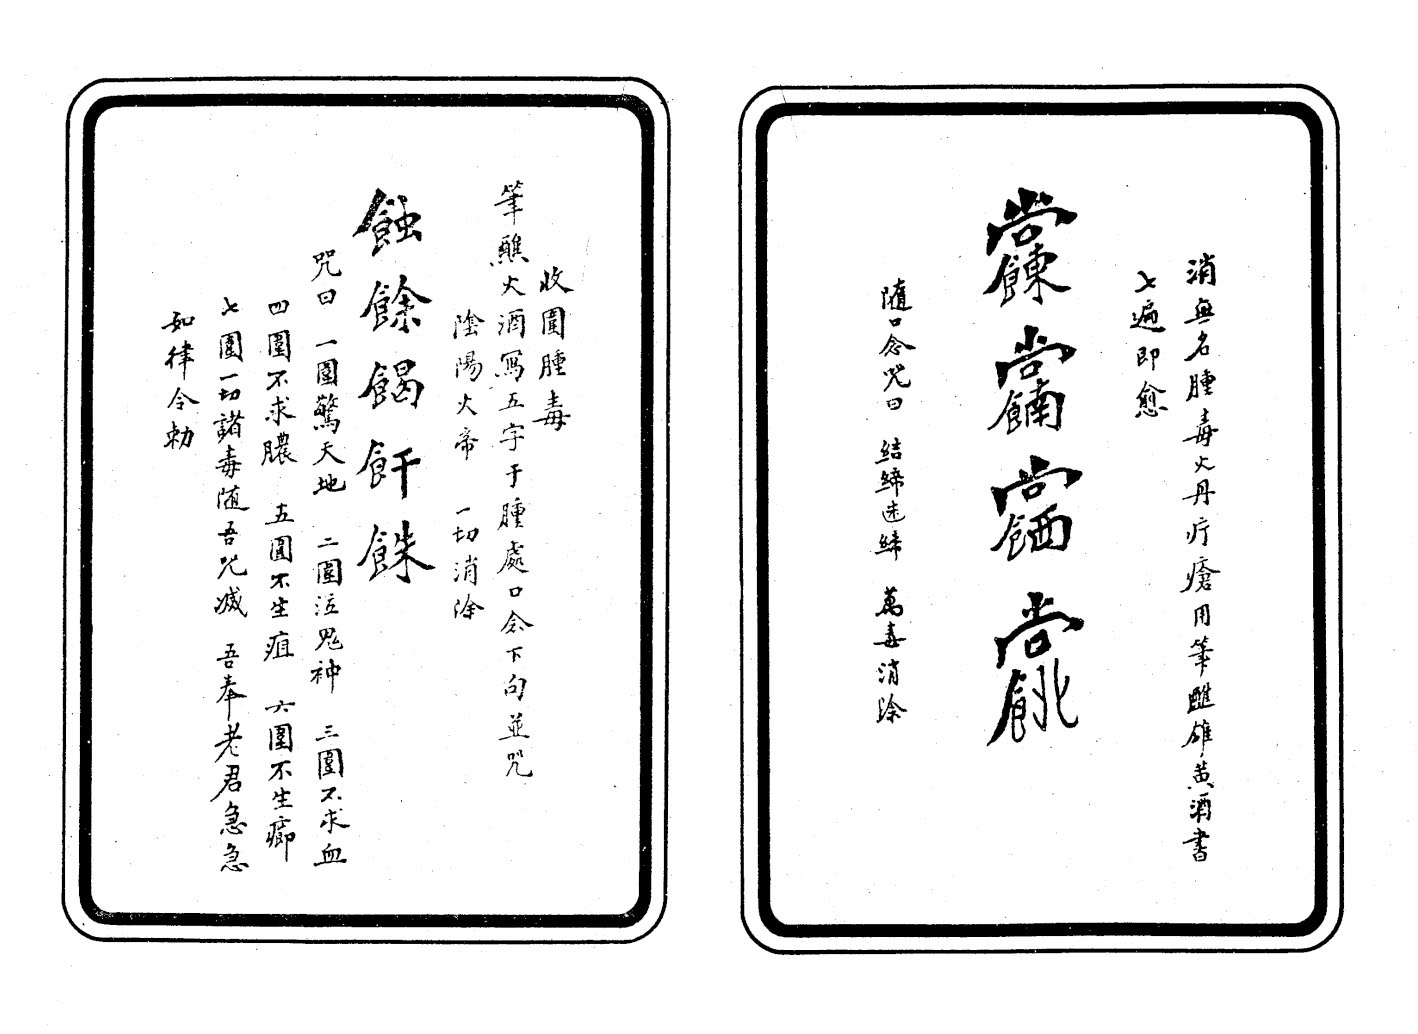 消無名腫毒火丹疔瘡用筆蘸雄黃酒書
七遍即愈
隨口念咒曰 结締迷締 萬毒消除
收圍腫毒
筆蘸火酒寫五字于腫處口念下句並咒
陰陽火帝 一切消除
蝕餘餲飦餗
咒曰 一圍驚天地 二圍泣鬼神 三圍不求血
四圍不求膿 五圍不生疽 六圍不生癤
七圍一切諸毒随吾咒滅 吾奉老君急急
如律令勅